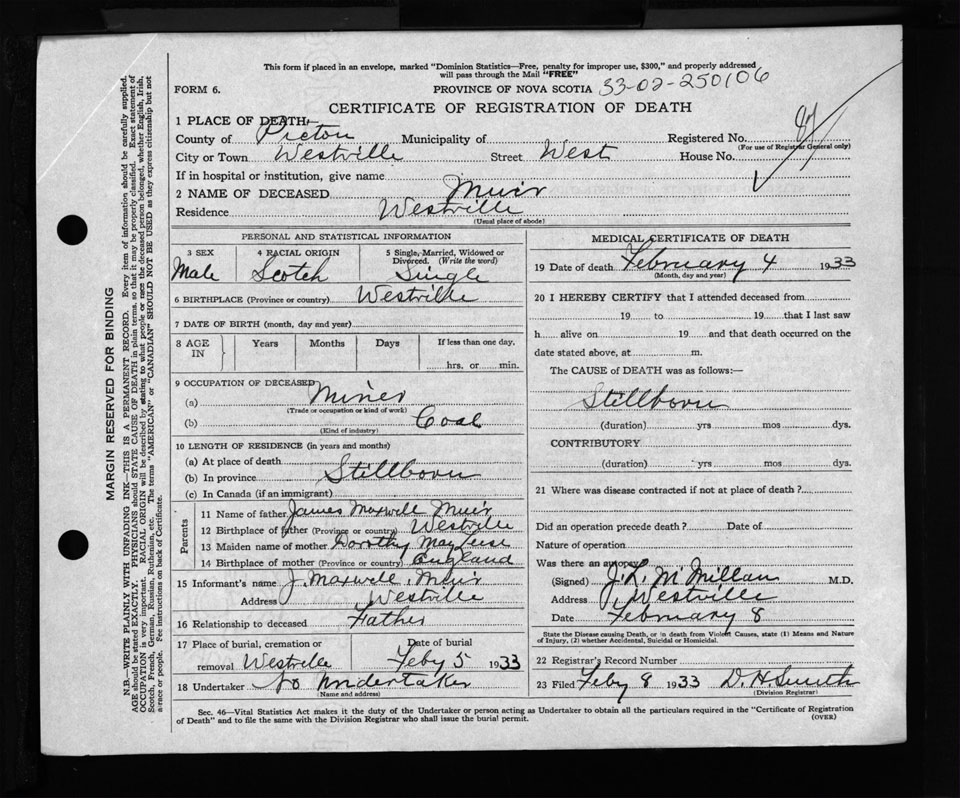 This form if placed in an envelope, marked "Dominion Statistics—Free, penalty for improper use, $300," and properly addressed
will pass through the Mail "FREE"
FORM 6. PROVINCE OF NOVA SCOTIA 33-02-250106
CERTIFICATE OF REGISTRATION OF DEATH
1 PLACE OF DEATH
County of Pictou Municipality of Registered No. 87
(For use of Registrar General only)
City or Town Westville Street West House No.
If in hospital or institution, give name
2 NAME OF DECEASED Muir
Residence Westville
(Usual place of abode)
PERSONAL AND STATISTICAL INFORMATION
3 SEX 4 RACIAL ORIGIN 5 Single, Married, Widowed or
Divorced. (Write the word)
Male Scotch Single
6 BIRTHPLACE (Province or country) Westville
7 DATE OF BIRTH (month, day and year)
8 AGE IN Years Months Days If less than one day,
hrs. or min.
9 OCCUPATION OF DECEASED
(a) Miner
(Trade or occupation or kind of work)
(b) Coal
(Kind of industry)
10 LENGTH OF RESIDENCE (in years and months)
(a) At place of death
(b) In province Stillborn
(c) In Canada (if an immigrant)
Parents
11 Name of father James Maxwell Muir
12 Birthplace of father (Province or country) Westville
13 Maiden name of mother Dorothy May
14 Birthplace of mother (Province or country) England
15 Informant's name J. Maxwell Muir
Address Westville
16 Relationship to deceased Father
17 Place of burial, cremation or Date of burial
removal Westville Feby 5 1933
18 Undertaker No Undertaker
(Name and address)
MEDICAL CERTIFICATE OF DEATH
19 Date of death February 4 1933
(Month, day and year)
20 I HEREBY CERTIFY that I attended deceased from
19 to 19 that I last saw
h alive on 19 and that death occurred on the
date stated above, at m.
The CAUSE of DEATH was as follows:—
Stillborn
(duration) yrs mos dys.
CONTRIBUTORY
(duration) yrs mos dys.
21 Where was disease contracted if not at place of death?
Did an operation precede death? Date of
Nature of operation
Was there an autopsy
(Signed) J. L. McMillan M.D.
Address Westville
Date February 8
State the Disease causing Death, or in death from Violent Causes, state (1) Means and Nature
of Injury, (2) whether Accidental, Suicidal or Homicidal.
22 Registrar's Record Number
23 Filed Feby 8 1933 D. H Smith
(Division Registrar)
Sec. 46—Vital Statistics Act makes it the duty of the Undertaker or person acting as Undertaker to obtain all the particulars required in the "Certificate of Registration
of Death" and to file the same with the Division Registrar who shall issue the burial permit. (OVER)
MARGIN RESERVED FOR BINDING
N.B.—WRITE PLAINLY WITH UNFADING INK—THIS IS A PERMANENT RECORD. Every item of information should be carefully supplied.
AGE should be stated EXACTLY. PHYSICIANS should STATE CAUSE OF DEATH in plain terms, so that it may be properly classified. Exact statement of
OCCUPATION is very important. RACIAL ORIGIN will be described by stating to what people or race the deceased person belonged, whether English, Irish,
Scotch, French, German, Russian, Ruthenian, etc. The terms "AMERICAN" or "CANADIAN" SHOULD NOT BE USED as they express citizenship but not
a race or people. See instructions on back of Certificate.